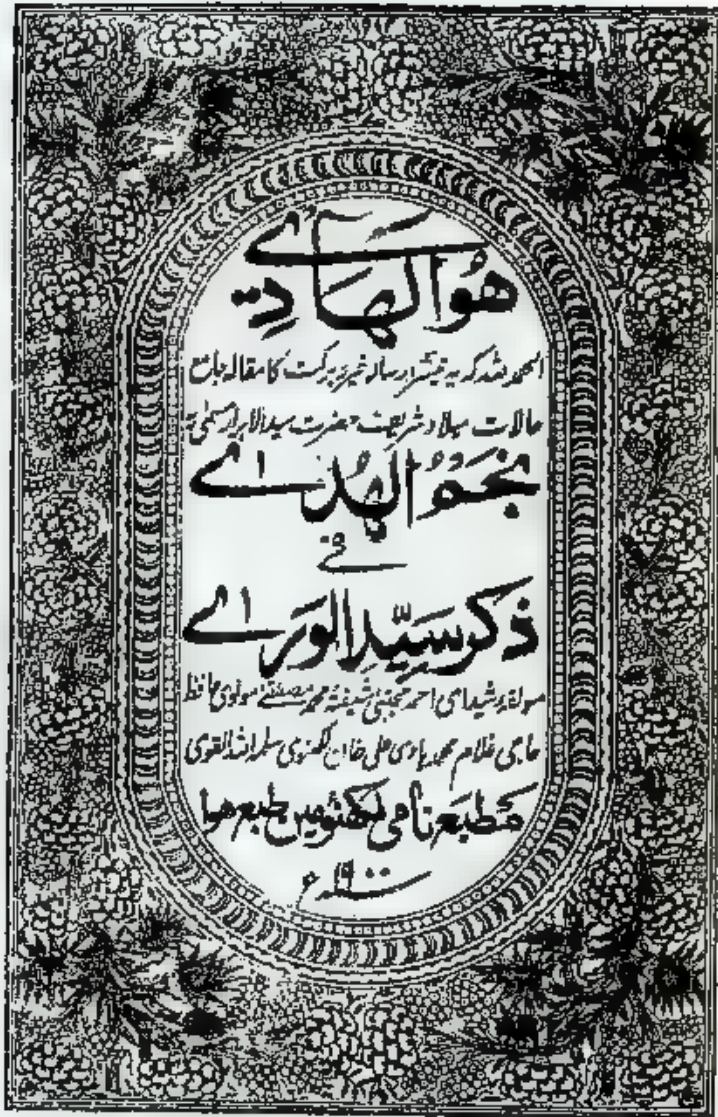 هُوَ الهَادِی
الحمد للہ کہ یہ رسالہ خیر و برکت کا مقالہ جامع
حالات میلاد شریف حضرت سید الابرار مسمّٰی بہ
نجمُ الہُدٰے
فی
ذکر سیّدِ الورٰے
مولفہ شیدای احمد مجتبیٰ شیفتۂ محمد مصطفےٰ مولوی حافظ
حاجی غلام محمد ہادی علی خان لکھنوی سلمہ اللہ القوی
مطبع نامی لکھنؤ مین طبع ہوا
۱۹۰۰ء